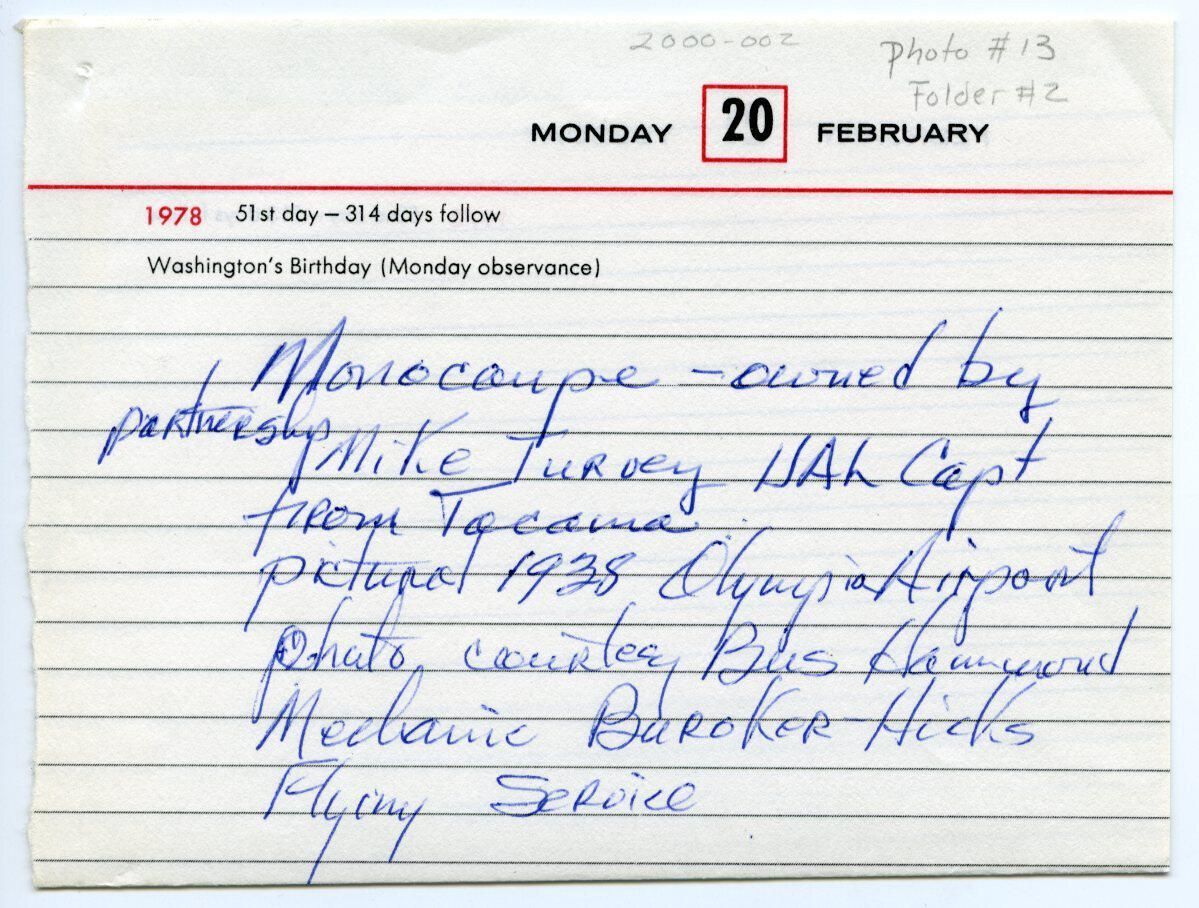 2000-002
Photo #13
Folder #2
MONDAY 20 FEBRUARY
1978 51st day – 314 days follow
Washington's Birthday (Monday observance)
Monocoupe – owned by
partnership Mike Turvey UAL Capt
from Tacoma
pictured 1938 Olympia Airport
photo courtesy Bus Hammond
Mechanic Buroker-Hicks
Flying Service